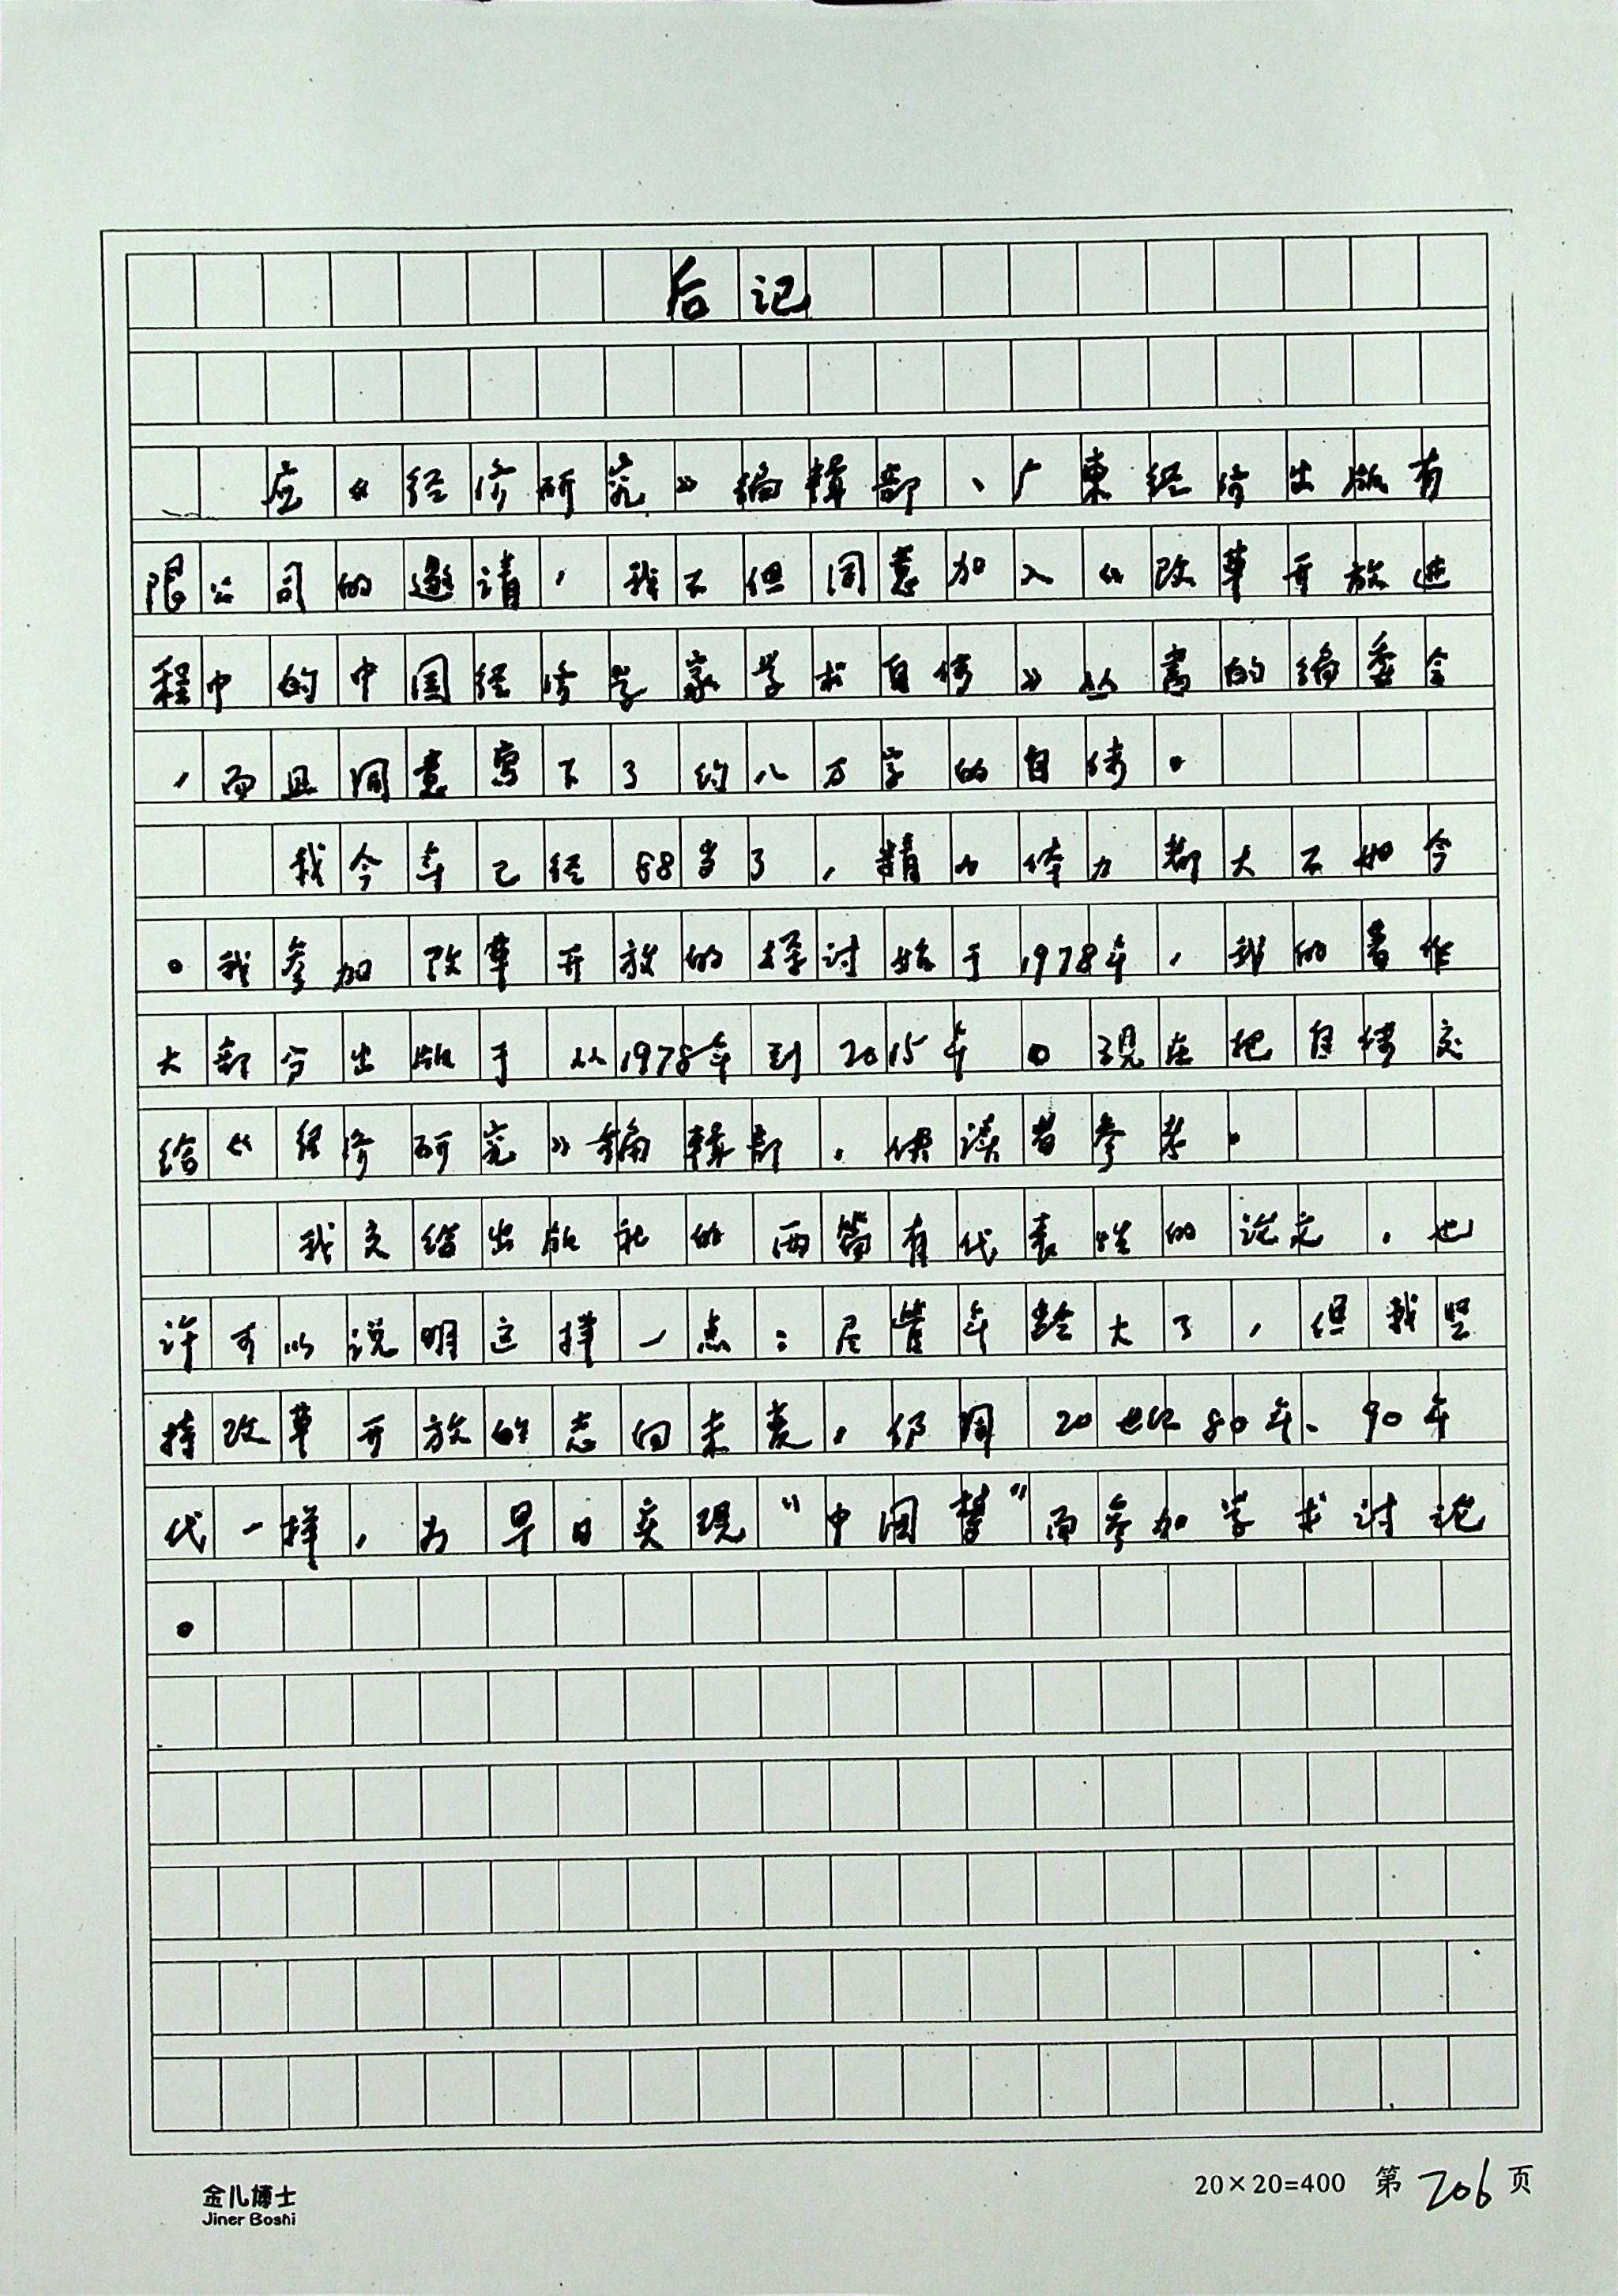 后记
应《经济研究》编辑部、广東经济出版有
限公司的邀请，我不但同意加入《改革开放进
程中的中国经济学家学术自传》丛書的编委会
，而且同意写下了约八万字的自传。
我今年已经68岁了，精力体力都大不如今
。我参加改革开放的探讨始于1978年，我的著作
大部分出版于从1978年到2015年。现在把自传交
给《经济研究》编辑部，供读者参考。
我交给出版社的两篇有代表性的论文，也
许可以说明这样一点：尽管年龄大了，但我坚
持改革开放的志向未竟，仍同20世纪80年、90年
代一样，为早日实现“中国梦”而参加学术讨论
。
金儿博士
Jiner Boshi
20×20=400 第206页